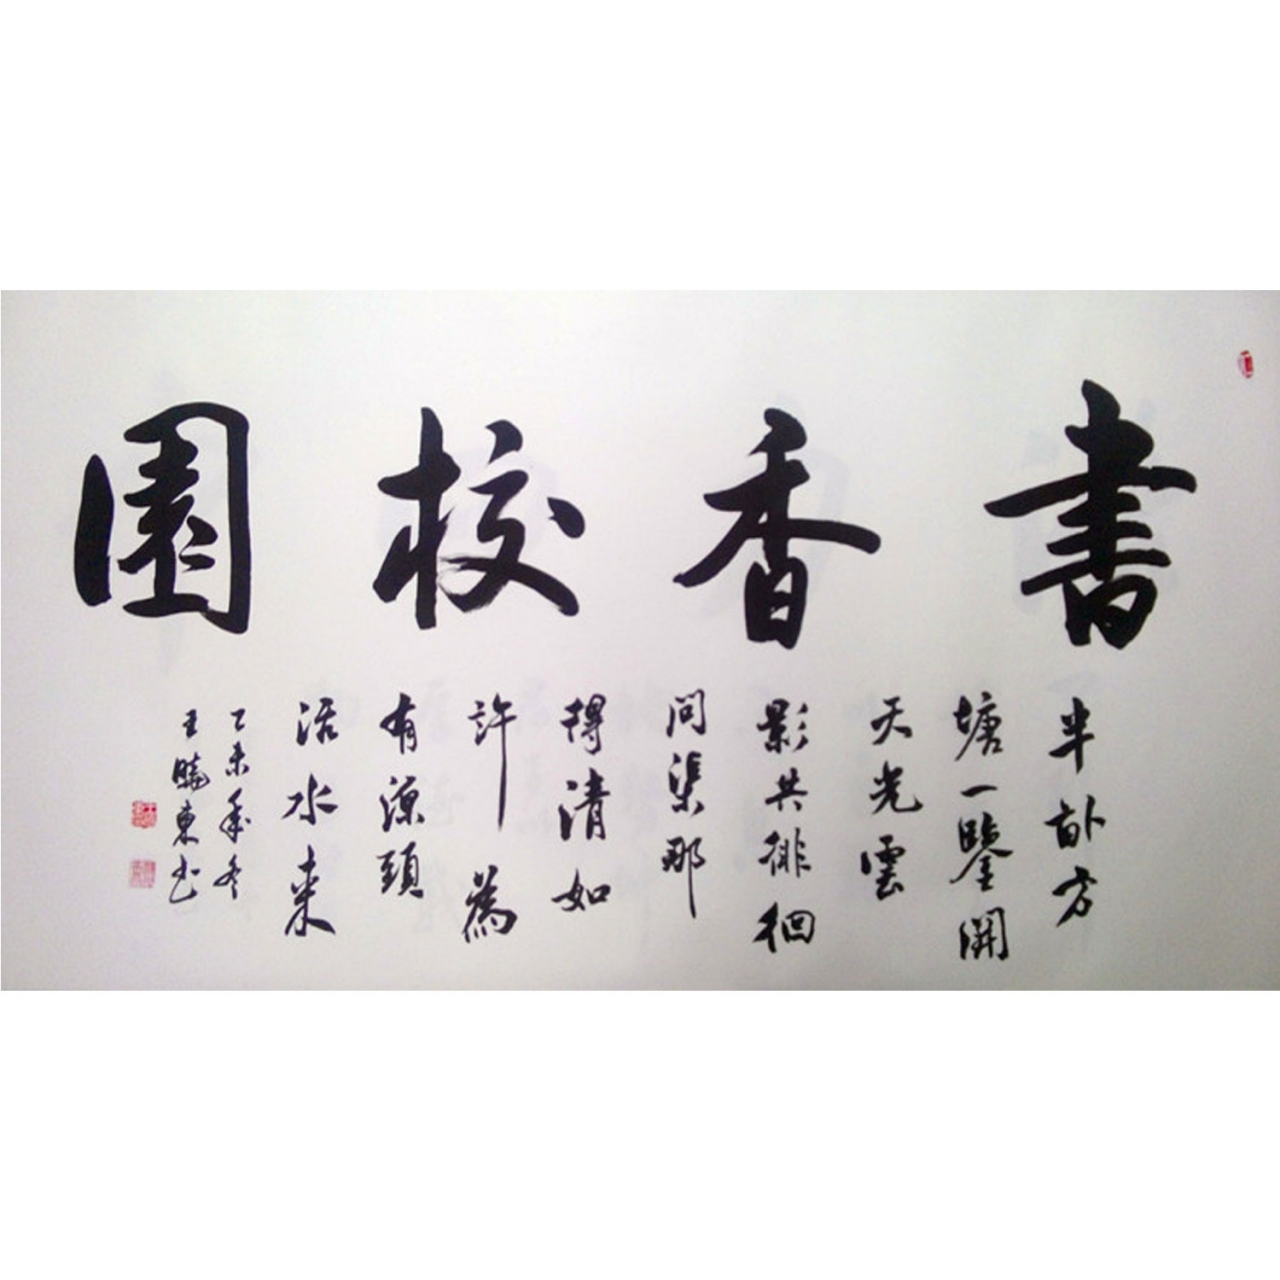 書香校園
半畝方
塘一鑒開
天光雲
影共徘徊
問渠那
得清如
許為
有源頭
活水来
乙未年冬
王曉東书